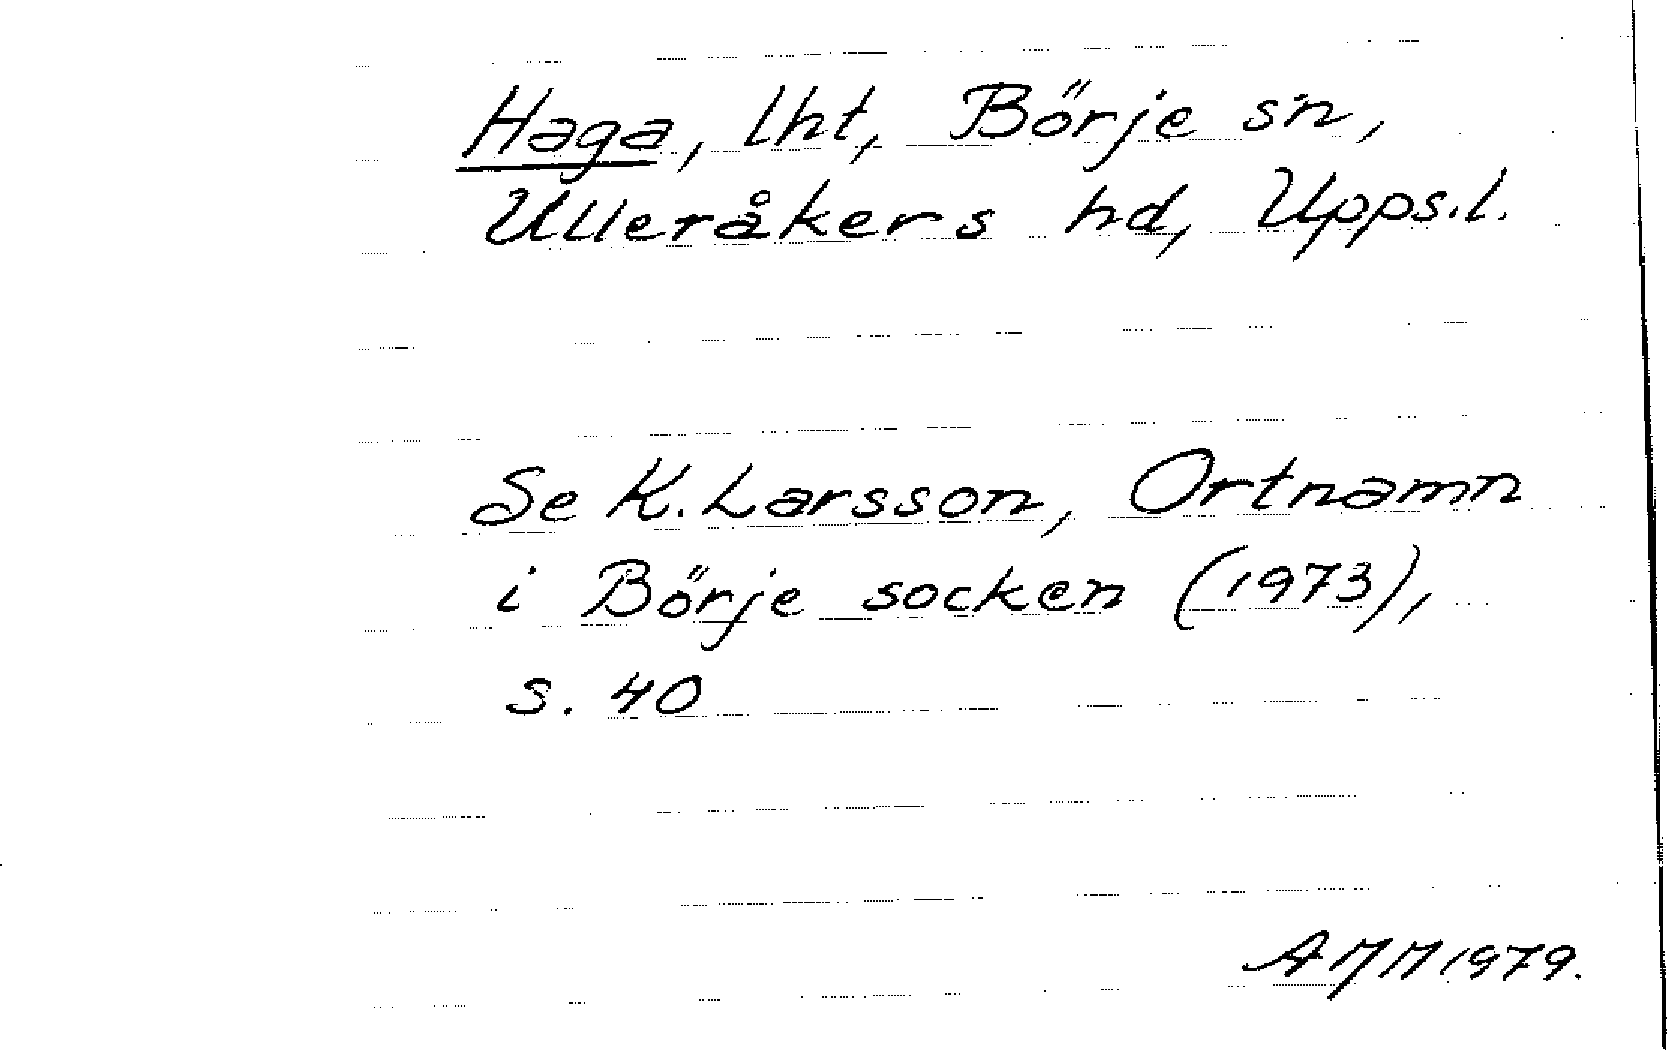 Haga, lht, Börje sn,
Ulleråkers hd, Upps.l.
Se K. Larsson, Ortnamn
i Börje socken (1973),
s. 40
1979.